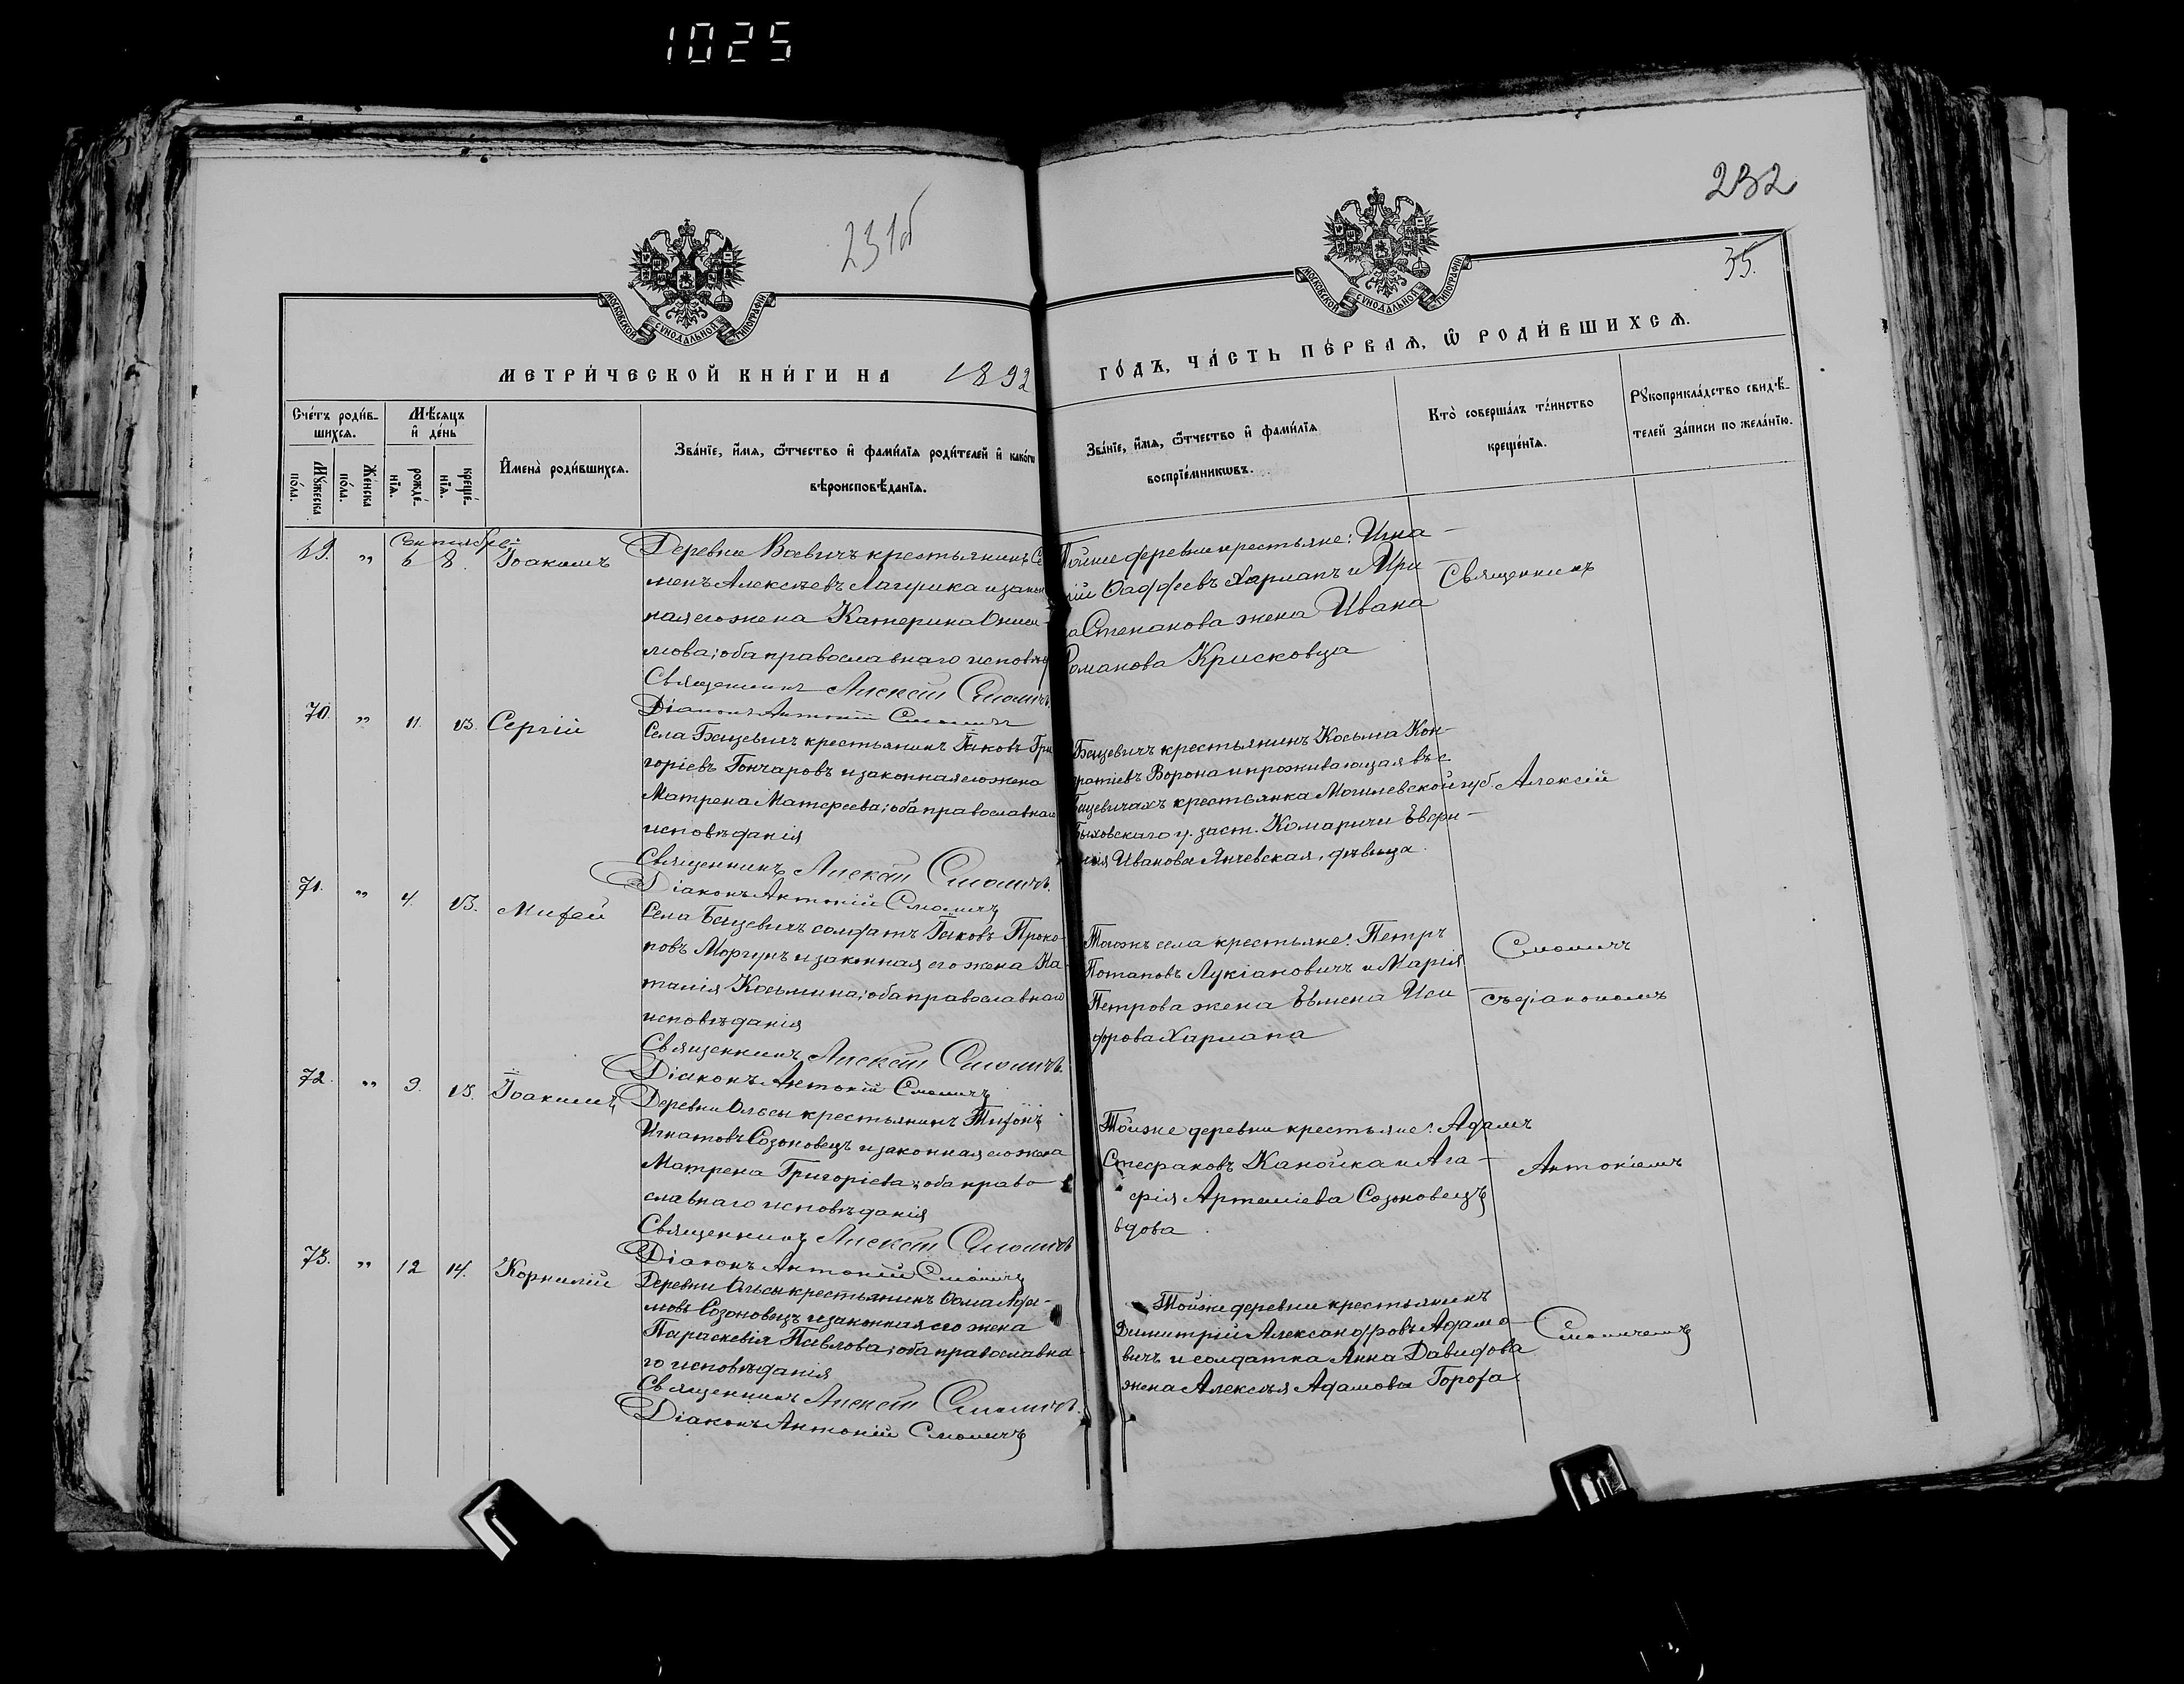 1025
231об
232
35.
МОСКОВСКОЙ СѴНОДАЛЬНОЙ ТИПОГРАФІИ
МОСКОВСКОЙ СѴНОДАЛЬНОЙ ТИПОГРАФІИ
МЕТРИ́ЧЕСКОЙ КНИ́ГИ НА 1892 ГО́ДЪ, ЧА́СТЬ ПЕ́РВАѦ, Ѽ РОДИ́ВШИХСѦ.
Сче́тъ роди́в-
шихсѧ.
Мѣ́сѧцъ
и҆ де́нь
Мꙋ́жеска
по́ла.
Же́нска
по́ла.
рожде́-
нїѧ.
креще́-
нїѧ.
И҆мена̀ роди́вшихсѧ.
Зва́нїе, и҆́мѧ, ѻ҆́тчество и҆ фами́лїѧ роди́телей и҆ како́гѡ
вѣроисповѣ́данїѧ.
Зва́нїе, и҆́мѧ, ѻ҆́тчество и҆ фами́лїѧ
воспрїе́мникѡвъ.
Кто̀ соверша́лъ та́инство
креще́нїѧ.
Рꙋкоприкла́дство свидѣ́-
телей за́писи по жела́нїю.
Сентябрь
69. „ 6 8. Іоакимъ
Деревни Воевичъ крестьянинъ Се
менъ Алексѣевъ Лагушка и закон
ная его жена Катерина Ониси-
мова; оба православнаго исповѣд
Священникъ Алексій Смоличъ.
Діаконъ Антоній Смоличъ
Тойже деревни крестьяне: Игна-
тій Фаддеевъ Харланъ и Ири
на Степанова жена Ивана
Романова Крисковца
Священникъ
70. „ 11. 13. Сергій
Села Бацевичъ крестьянинъ Іаковъ Гри
горіевъ Гончаровъ и законная его жена
Матрена Матѳеева; оба православнаго
исповѣданія
Священникъ Алексій Смоличъ.
Діаконъ Антоній Смоличъ
Бацевичъ крестьянинъ Косьма Кон-
дратіевъ Ворона и проживающая въ с.
Бацевичахъ крестьянка Могилевской губ.
Быховскаго у. заст. Комаричи Евфи-
мія Иванова Янчевская, дѣвица.
Алексій
71. „ 4. 13. Михей
Села Бацевичъ солдатъ Іаковъ Проко-
повъ Моргунъ и законная его жена На-
талія Косьмина; оба православнаго
исповѣданія
Священникъ Алексій Смоличъ.
Діаконъ Антоній Смоличъ
Тогожъ села крестьяне: Петръ
Потаповъ Лукіановичъ и Марія
Петрова жена Евмена Иси-
дорова Харлана
Смоличъ
съ діакономъ
72. „ 9. 13. Іоакимъ
Деревни Ольсы крестьянинъ Тихонъ
Игнатовъ Созоновецъ и законная его жена
Матрена Григоріева; оба право-
славнаго исповѣданія
Священникъ Алексій Смоличъ
Діаконъ Антоній Смоличъ
Тойже деревни крестьяне: Адамъ
Стефановъ Канойка и Ага-
фія Артеміева Созоновецъ
вдова.
Антоніемъ
73. „ 12 14. Корнилій
Деревни Ольсы крестьянинъ Ѳома Ада-
мовъ Созоновецъ и законная его жена
Параскевія Павлова; оба православна-
го исповѣданія
Священникъ Алексій Смоличъ.
Діаконъ Антоній Смоличъ
Тойже деревни крестьянинъ
Димитрій Александровъ Адамо-
вичъ и солдатка Анна Давидова
жена Алексѣя Адамова Гороха.
Смоличемъ